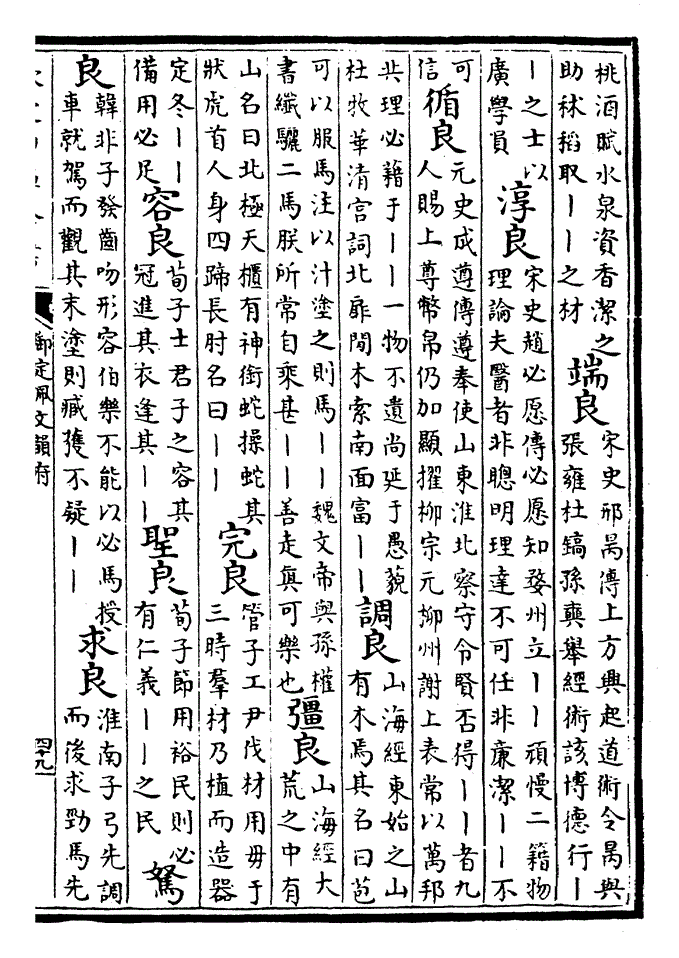 桃酒賦水泉資香潔之
助秫稻取丨丨之材
端良
宋史邢昺傳上方興起道術令昺與
張雍杜鎬孫奭舉經術該博德行丨
丨之士以
廣學員
淳良
宋史趙必愿傳必愿知婺州立丨丨頑慢二籍物
理論夫醫者非聰明理達不可任非廉潔丨丨不
可
信
循良
元史成遵傳遵奉使山東淮北察守令賢否得丨丨者九
人賜上尊幣帛仍加顯擢柳宗元柳州謝上表常以萬邦
共理必藉于丨丨一物不遺尚延于愚藐
杜牧華清宮詞北扉閒木索南面富丨丨
調良
山海經東始之山
有木焉其名曰芑
可以服馬注以汁塗之則馬丨丨魏文帝與孫權
書纖驪二馬朕所常自乘甚丨丨善走真可樂也
彊良
山海經大
荒之中有
山名曰北極天櫃有神銜蛇操蛇其
狀虎首人身四蹄長肘名曰丨丨
完良
管子工尹伐材用毋于
三時羣材乃植而造器
定冬丨丨
備用必足
容良
荀子士君子之容其
冠進其衣逢其丨丨
聖良
荀子節用裕民則必
有仁義丨丨之民
駑
良
韓非子發齒吻形容伯樂不能以必馬授
車就駕而觀其末塗則臧獲不疑丨丨
求良
淮南子弓先調
而後求勁馬先
御定佩文韻府
四十九